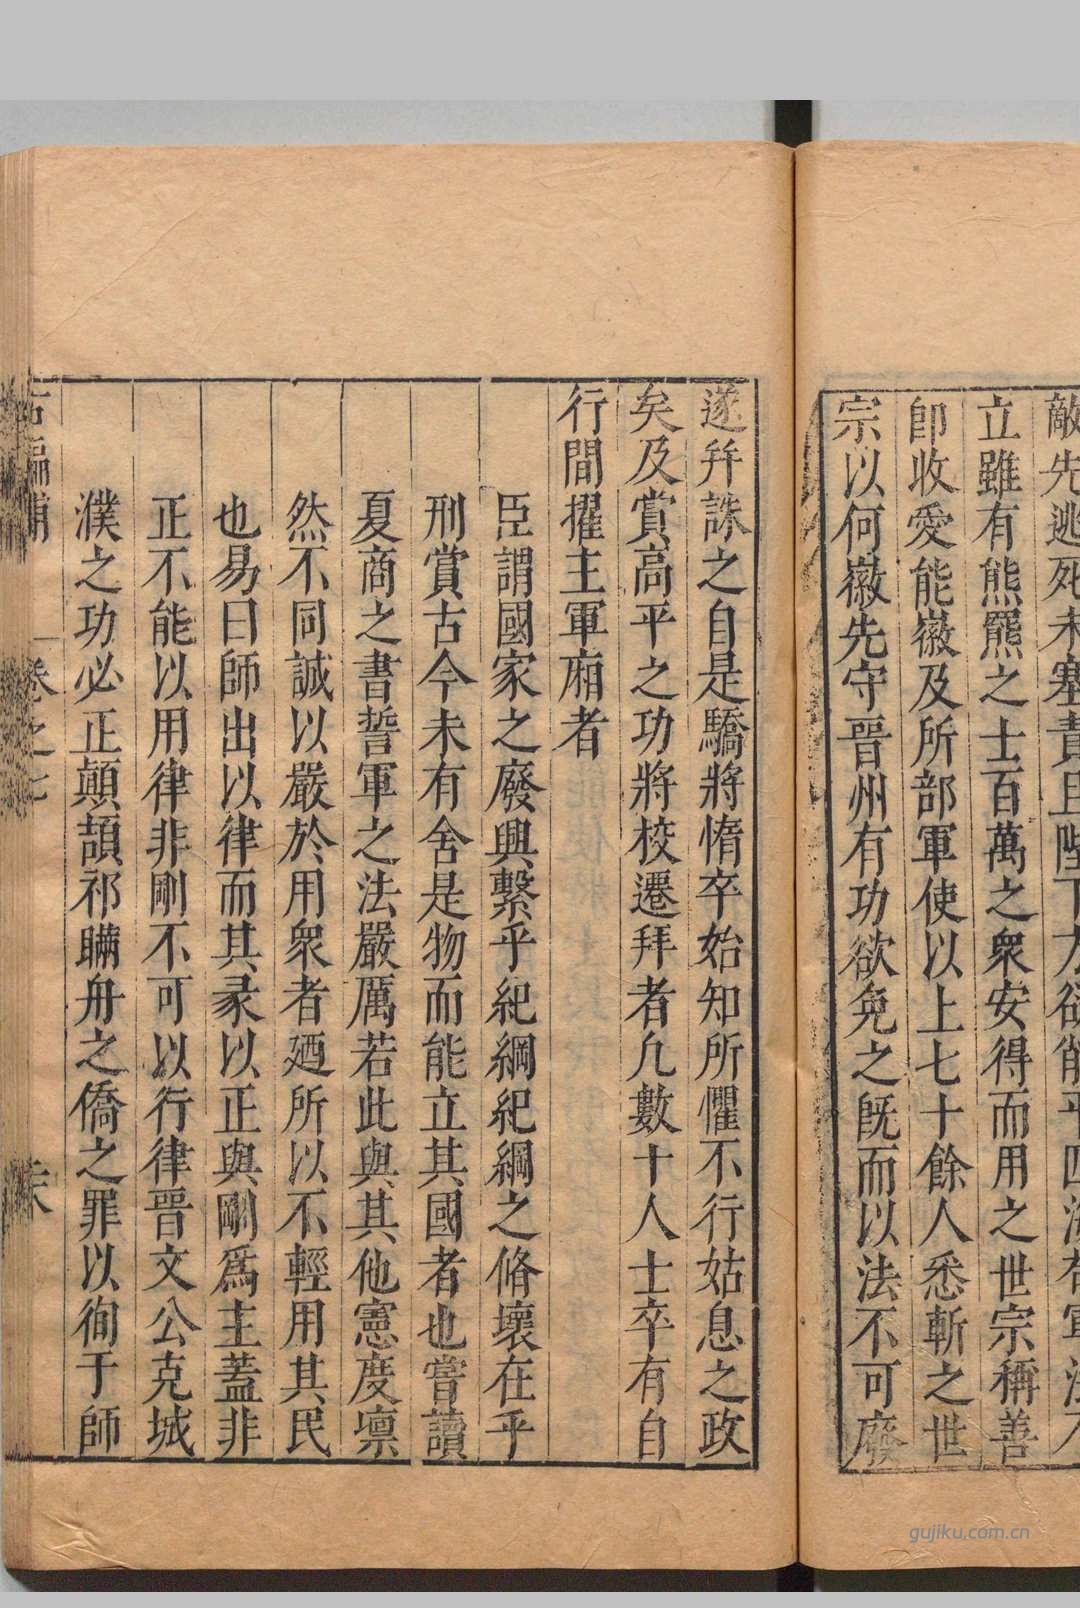 敵先逃死未塞責且陛下方欲削平四海苟軍法不
立雖有熊羆之士百萬之衆安得而用之世宗稱善
卽收愛能徽及所部軍使以上七十餘人悉斬之世
宗以何徽先守晉州有功欲免之旣而以法不可廢
遂并誅之自是驕將惰卒始知所懼不行姑息之政
矣及賞高平之功將校遷拜者凡數十人士卒有自
行間擢主軍廂者
臣謂國家之廢興繫乎紀綱紀綱之脩壞在乎
刑賞古今未有舍是物而能立其國者也嘗讀
夏商之書誓軍之法嚴厲若此與其他憲度凛
然不同誠以嚴於用衆者廼所以不輕用其民
也易曰師出以律而其彖以正與剛爲主蓋非
正不能以用律非剛不可以行律晉文公克城
濮之功必正顛頡祁瞞舟之僑之罪以徇于師
卷之七
gujiku.com.cn